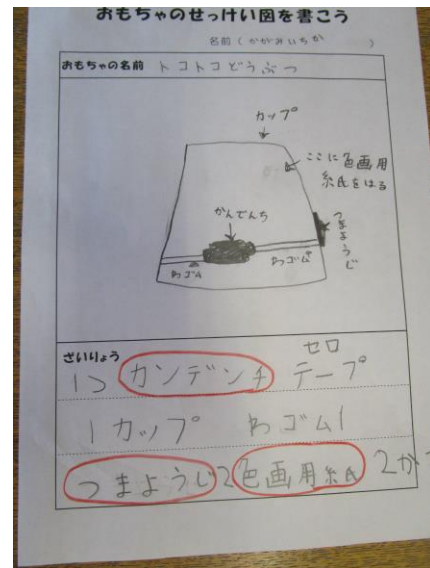 おもちゃのせっけい図を書こう
名前(かがみいちか)
おもちゃの名前 トコトコどうぶつ
カップ
ここに色画用
紙をはる
かんでんち
つまようじ
わゴム わゴム
ざいりょう
1つ カンデンチ セロテープ
1カップ わゴム1
つまようじ2 色画用紙 2か